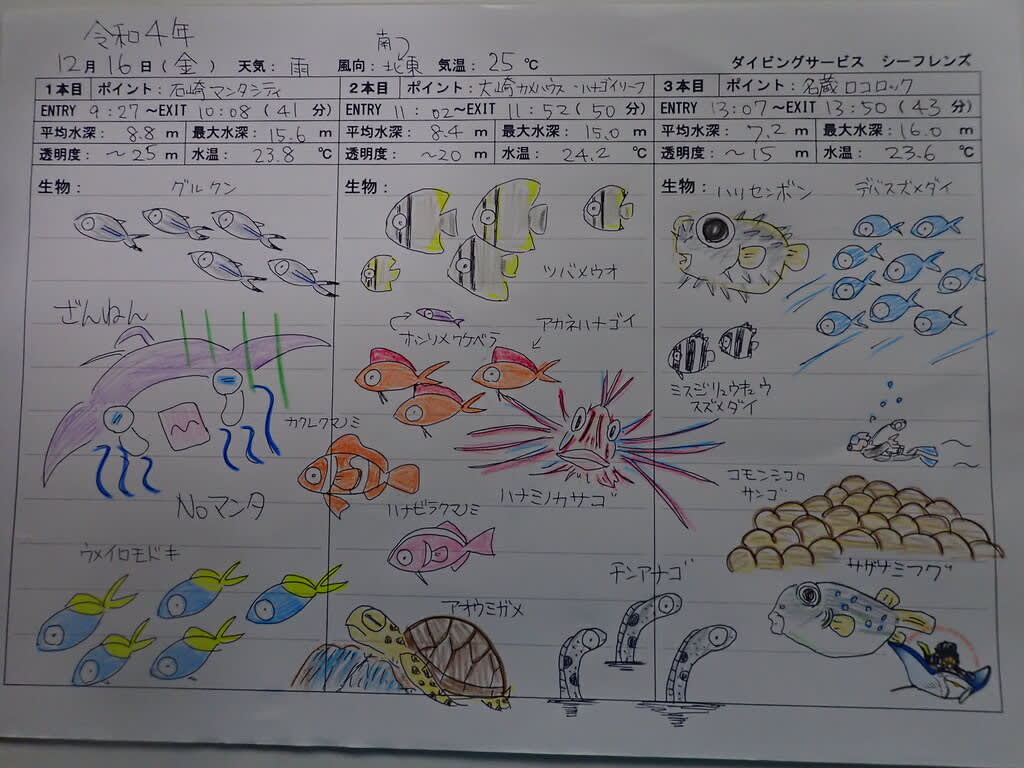 令和4年
12月16日(金) 天気:雨 風向:南→北東 気温:25℃ ダイビングサービス シーフレンズ
1本目 ポイント:石崎マンタシティ
ENTRY 9:27~EXIT 10:08(41分)
平均水深:8.8m 最大水深:15.6m
透明度:~25m 水温:23.8℃
生物:
グルクン
ざんねん
Noマンタ
ウメイロモドキ
2本目 ポイント:大崎カメハウス・ハナゴイリーフ
ENTRY 11:02~EXIT 11:52(50分)
平均水深:8.4m 最大水深:15.0m
透明度:~20m 水温:24.2℃
生物:
ツバメウオ
ホンソメワケベラ
アカネハナゴイ
カクレクマノミ
ハナミノカサゴ
ハナビラクマノミ
アオウミガメ
チンアナゴ
3本目 ポイント:名蔵ロコロック
ENTRY 13:07~EXIT 13:50(43分)
平均水深:7.2m 最大水深:16.0m
透明度:~15m 水温:23.6℃
生物:ハリセンボン
デバスズメダイ
ミスジリュウキュウ
スズメダイ
コモンシコロ
サンゴ
サザナミフグ